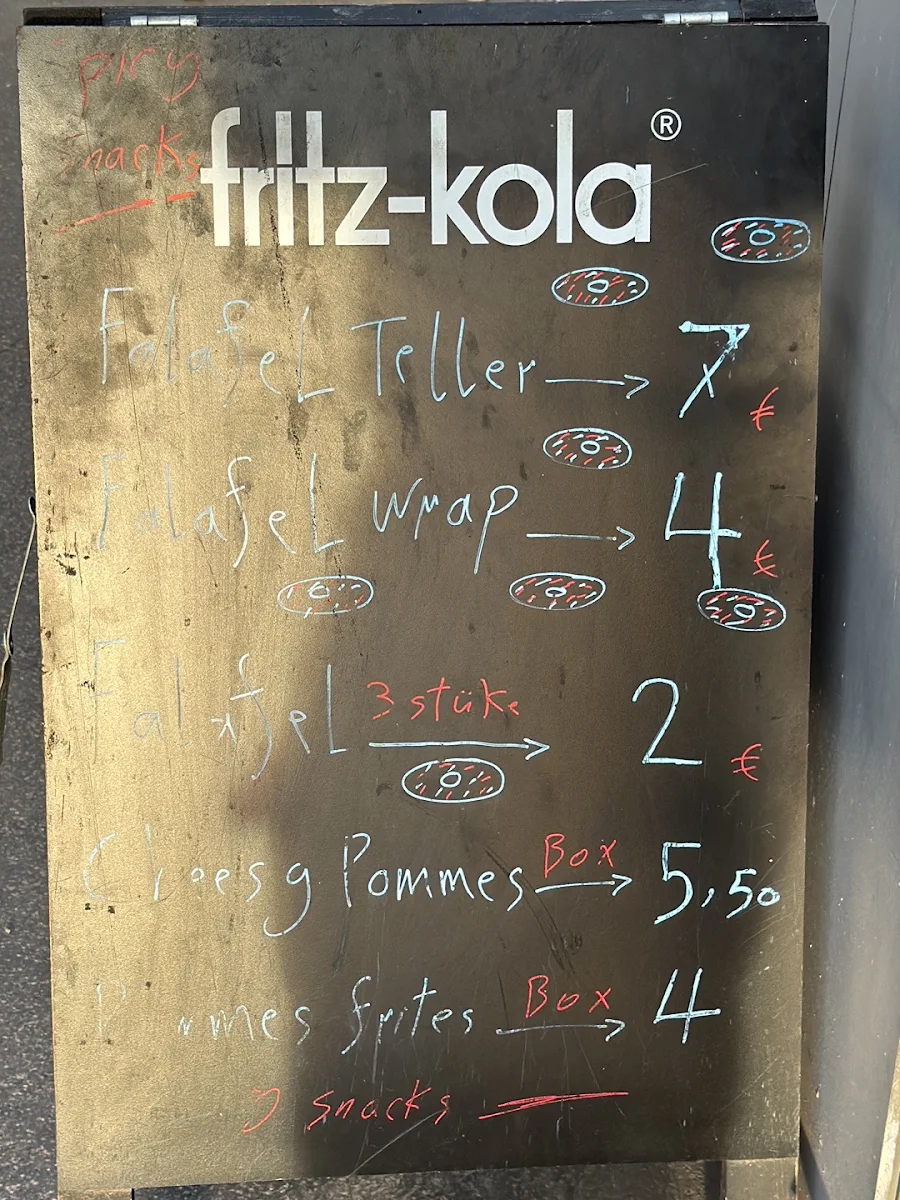 snacks
fritz-kola®
Falafel Teller → 7 €
Falafel wrap → 4 €
Falafel 3 stüke → 2 €
Cheesy Pommes Box → 5,50
Pommes frites Box → 4
snacks